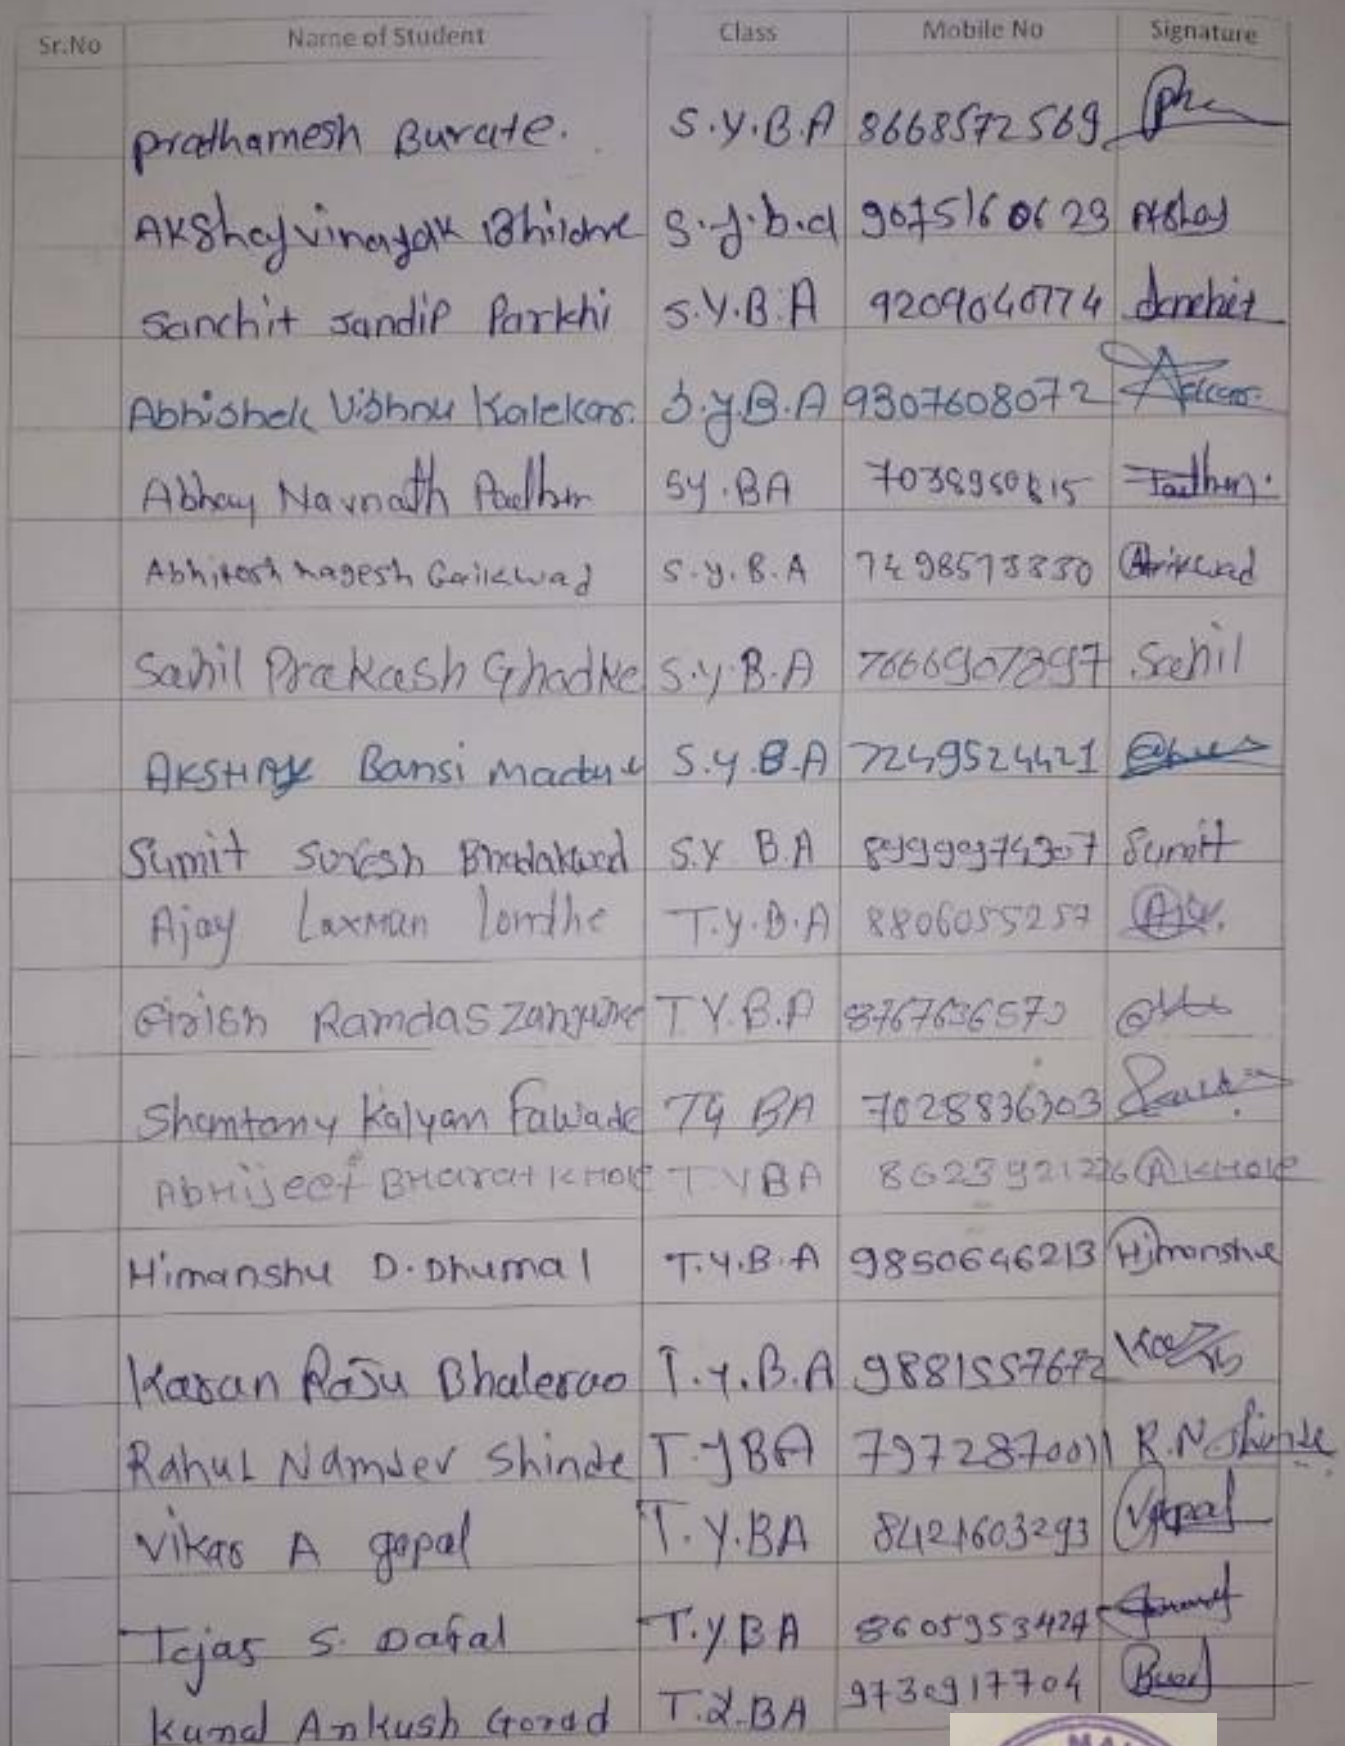 Sr.No Name of Student Class Mobile No Signature
Prathamesh Burate. S.Y.B.A 8668572569
Akshay vinayak S.y.b.a 9075160629 Akshay
Sanchit Sandip Parkhi S.Y.B.A 9209040774 Sanchit
Abhishek Vishnu Kalekar. S.y.B.A 9307608072
Abhay Navnath SY.BA
Abhitosh nagesh Gaikwad S.y.B.A Gaikwad
Sahil Prakash Ghadke S.y.B.A 7666907397 Sahil
AKSHAY Bansi S.Y.B.A 7249524421
Sumit Suresh S.Y B.A 8999974307 Sumit
Ajay Laxman londhe T.Y.B.A 8806055257
Girish Ramdas T.Y.B.A
Kalyan TY BA 7028836303
ABHijeet BHarat KHOLE T.YBA 8623921276 A KHOLE
Himanshu D. Dhumal T.Y.B.A 9850646213 Himanshu
Karan Raju Bhalerao T.Y.B.A 9881557672
Rahul Namdev Shinde T.YBA 7972870011 R.N.Shinde
Vikas A gopal T.Y.BA 8421603293 VGopal
Tejas S. Dafal T.YBA 8605953427
Kunal Ankush Gorad T.Y.BA 9730917704